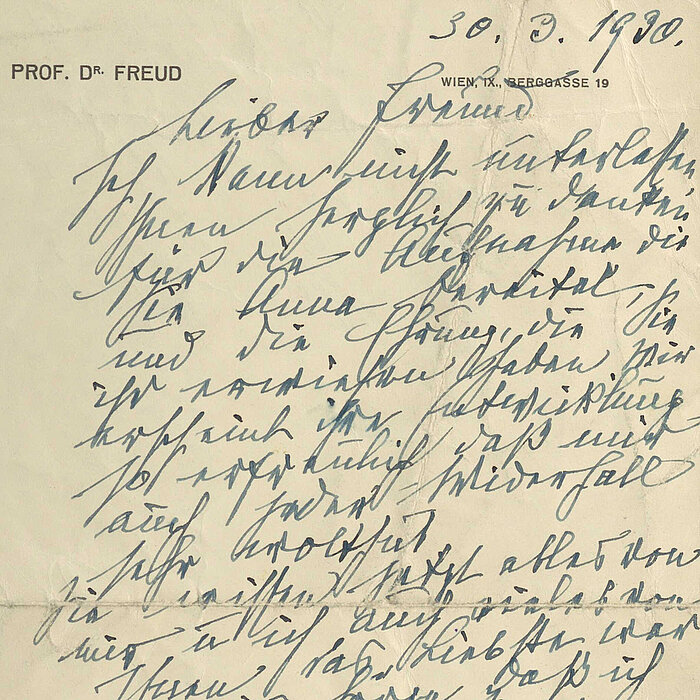 30. 3. 1930.
PROF. DR. FREUD
WIEN, IX., BERGGASSE 19
Lieber Freund
Ich kann nicht unterlaßen
Ihnen herzlich zu danken
für die Aufnahme die
Sie Anna bereitet,
und die Ehrung, die Sie
ihr erwiesen haben. Mir
erscheint ihre Entwicklung
so erfreulich daß mir
auch jeder Widerhall
sehr wolthut
Sie wissen jetzt alles von
mir u ich auch vieles von
Ihnen das Liebste war
daß ich